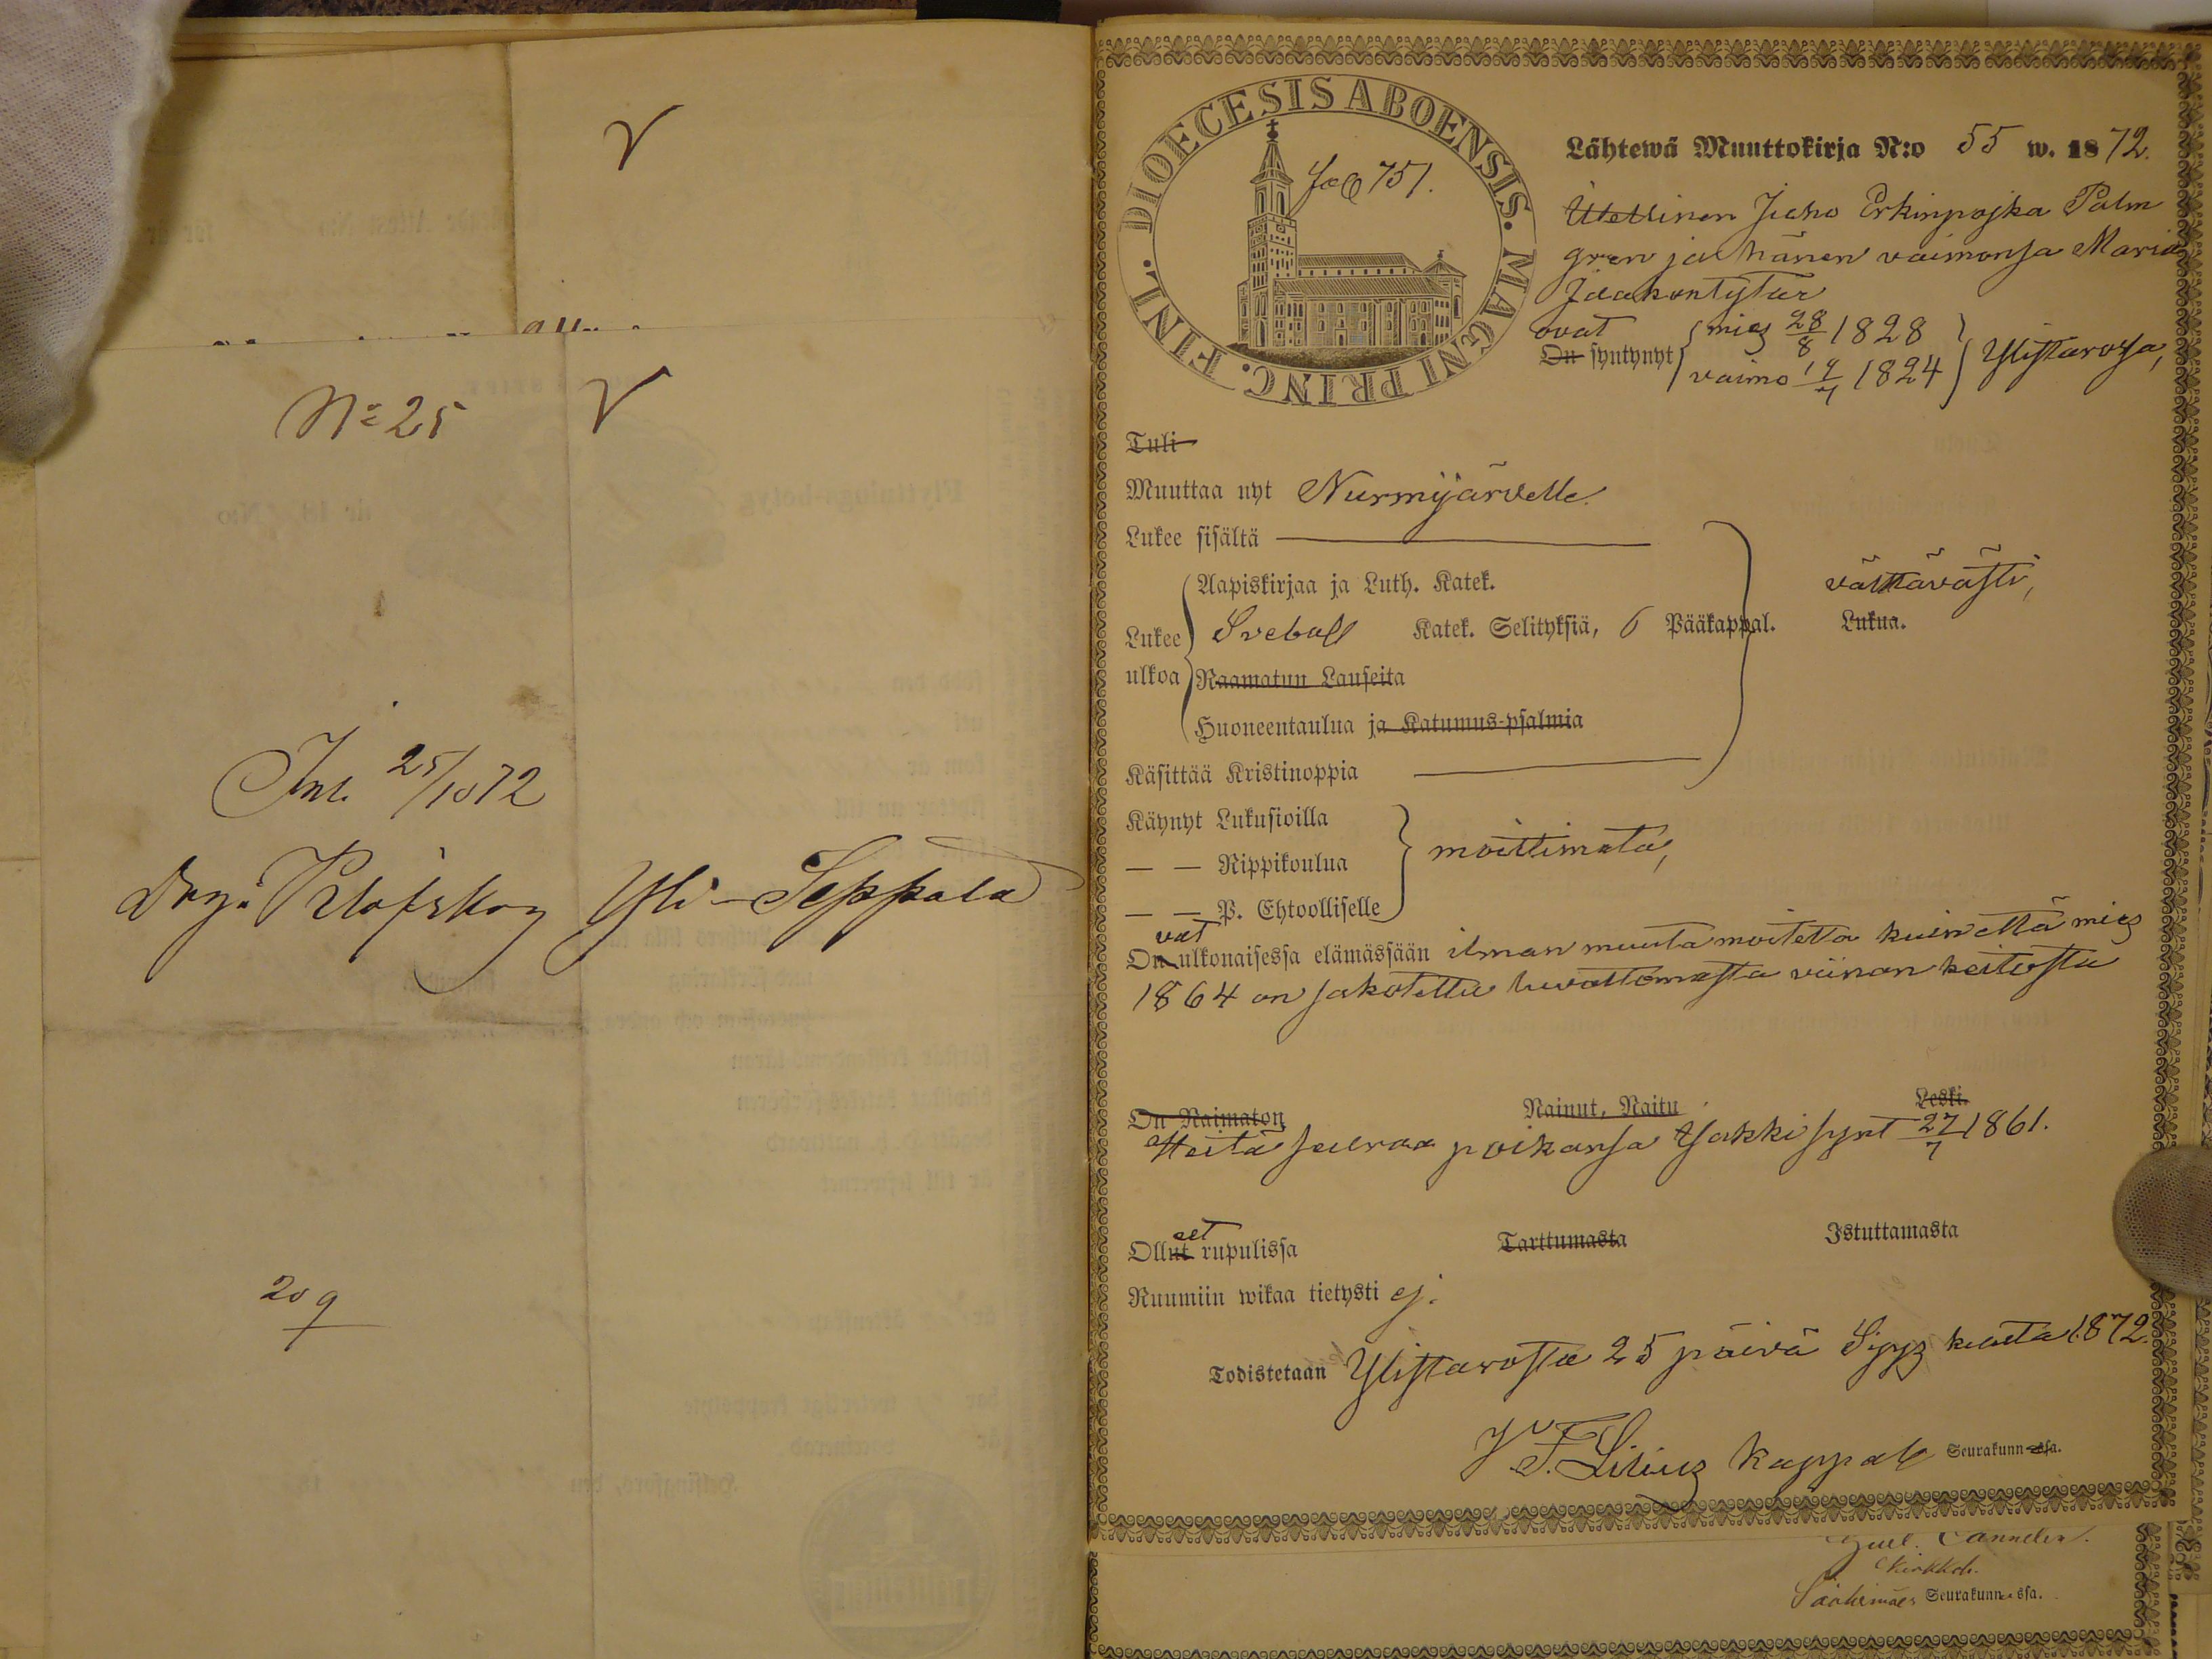 V
Nº 25 V
Inl. 25/10 72
Yli-Seppälä
209
DIOECESIS ABOENSIS. MAGNI PRINC. FINL.
751.
Lähtewä Muuttokirja N:o 55 w. 1872.
Itellinen Juho Erkinpojka Palm
gren ja hänen vaimonsa Maria
Jaakontytär
ovat
On syntynyt { mies 28/8 1828 } Ylistarossa,
vaimo 1824
Tuli
Muuttaa nyt Nurmijärvelle
Lukee sisältä
Aapiskirjaa ja Luth. Katek. välttävästi,
Lukee ulkoa Svebel Katek. Selityksiä, 6 Pääkappal. Lukua.
Raamatun Lauseita
Huoneentaulua ja Katumus-psalmia
Käsittää Kristinoppia
Käynyt Lukusioilla
— — Rippikoulua moittimata,
— — P. Ehtoolliselle
vat
On ulkonaisessa elämässään ilman muuta moitetta kuin että mies
1864 on sakotettu luvattomasta viinan keitosta
On Naimaton Nainut, Naitu Leski.
Heitä seuraa poikansa Jakki synt 27/7 1861.
eet
Ollut rupulissa Tarttumasta Istuttamasta
Ruumiin wikaa tietysti ej.
Todistetaan Ylistarossa 25 päivä Syys kuuta 1872.
Lilius kappal Seurakunnassa.
Cannelin.
Kirkkoh.
Sääksmäen Seurakunnassa.